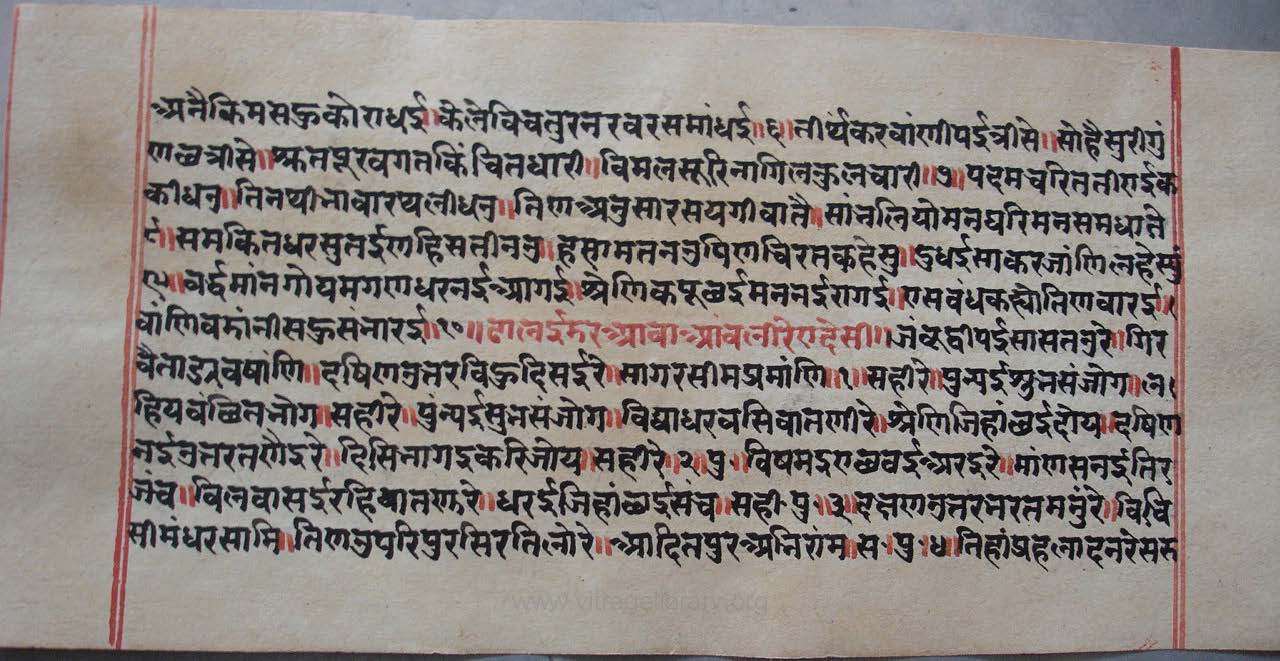 अनैकिमसहुकोराधई॥केलेविचतुरनरवरसमांधई॥६॥तीर्थंकरवांणीपईत्रीसे॥सोहैसुरीगुं
णछत्रीसे॥श्रुतपूरवगतकिंचितधारी॥विमलसूरिनागिलकुलचारी॥७॥पदमचरिततीणईक
कीधनु॥तिनथीलावारप्यलीधनु॥तिणअनुसारसयगीवातै॥सांनलियोमनधरिमनसमधाते
८॥समकितधरसुतईणहिसतीननु॥हसामतननउषिणचिरतकहेसु॥दुधईसाकरजांणिलहेस्युं
९॥वर्द्धमांनगोयमगणधरनईआगई॥श्रेणिकपूछईमननईरागई॥एसवंधकह्योतिणवारई॥
वांणिवदांनीसहुसंनारई॥१०॥ढालईडरआबाआंवलीरेएदेसी॥जंबूद्वीपईसासतनुरे॥गिर
वैताडूवषांणि॥दषिणउतरविहुदिसईरे॥सागरसीमप्रमांणि॥१॥सहीरे॥पुन्यईश्रुतसंजोग॥ल
हियवंछितनोग॥सहीरे॥पुंन्यईसुनसंजोग॥विद्याधरवसिवातणीरे॥श्रेणिजिहांछईदोय॥दषिण
नईउतरतणैइरे॥दिसिनागइकरिजोय॥सहीरे॥२॥पु॥विषमइणछवईअरइरे॥मांणसनईतिर
जंच॥विलवासईरहिवातणरे॥धरईजिहांछईसंच॥सही॥पु॥३॥दक्षणउतरनरतमनुंरे॥विचि
सीमंधरसामि॥तिणउपरिपुरसिरतिलोरे॥आदितपुरअनिरांम॥स॥पु॥४॥तिहांप्रहलादनरेसरु